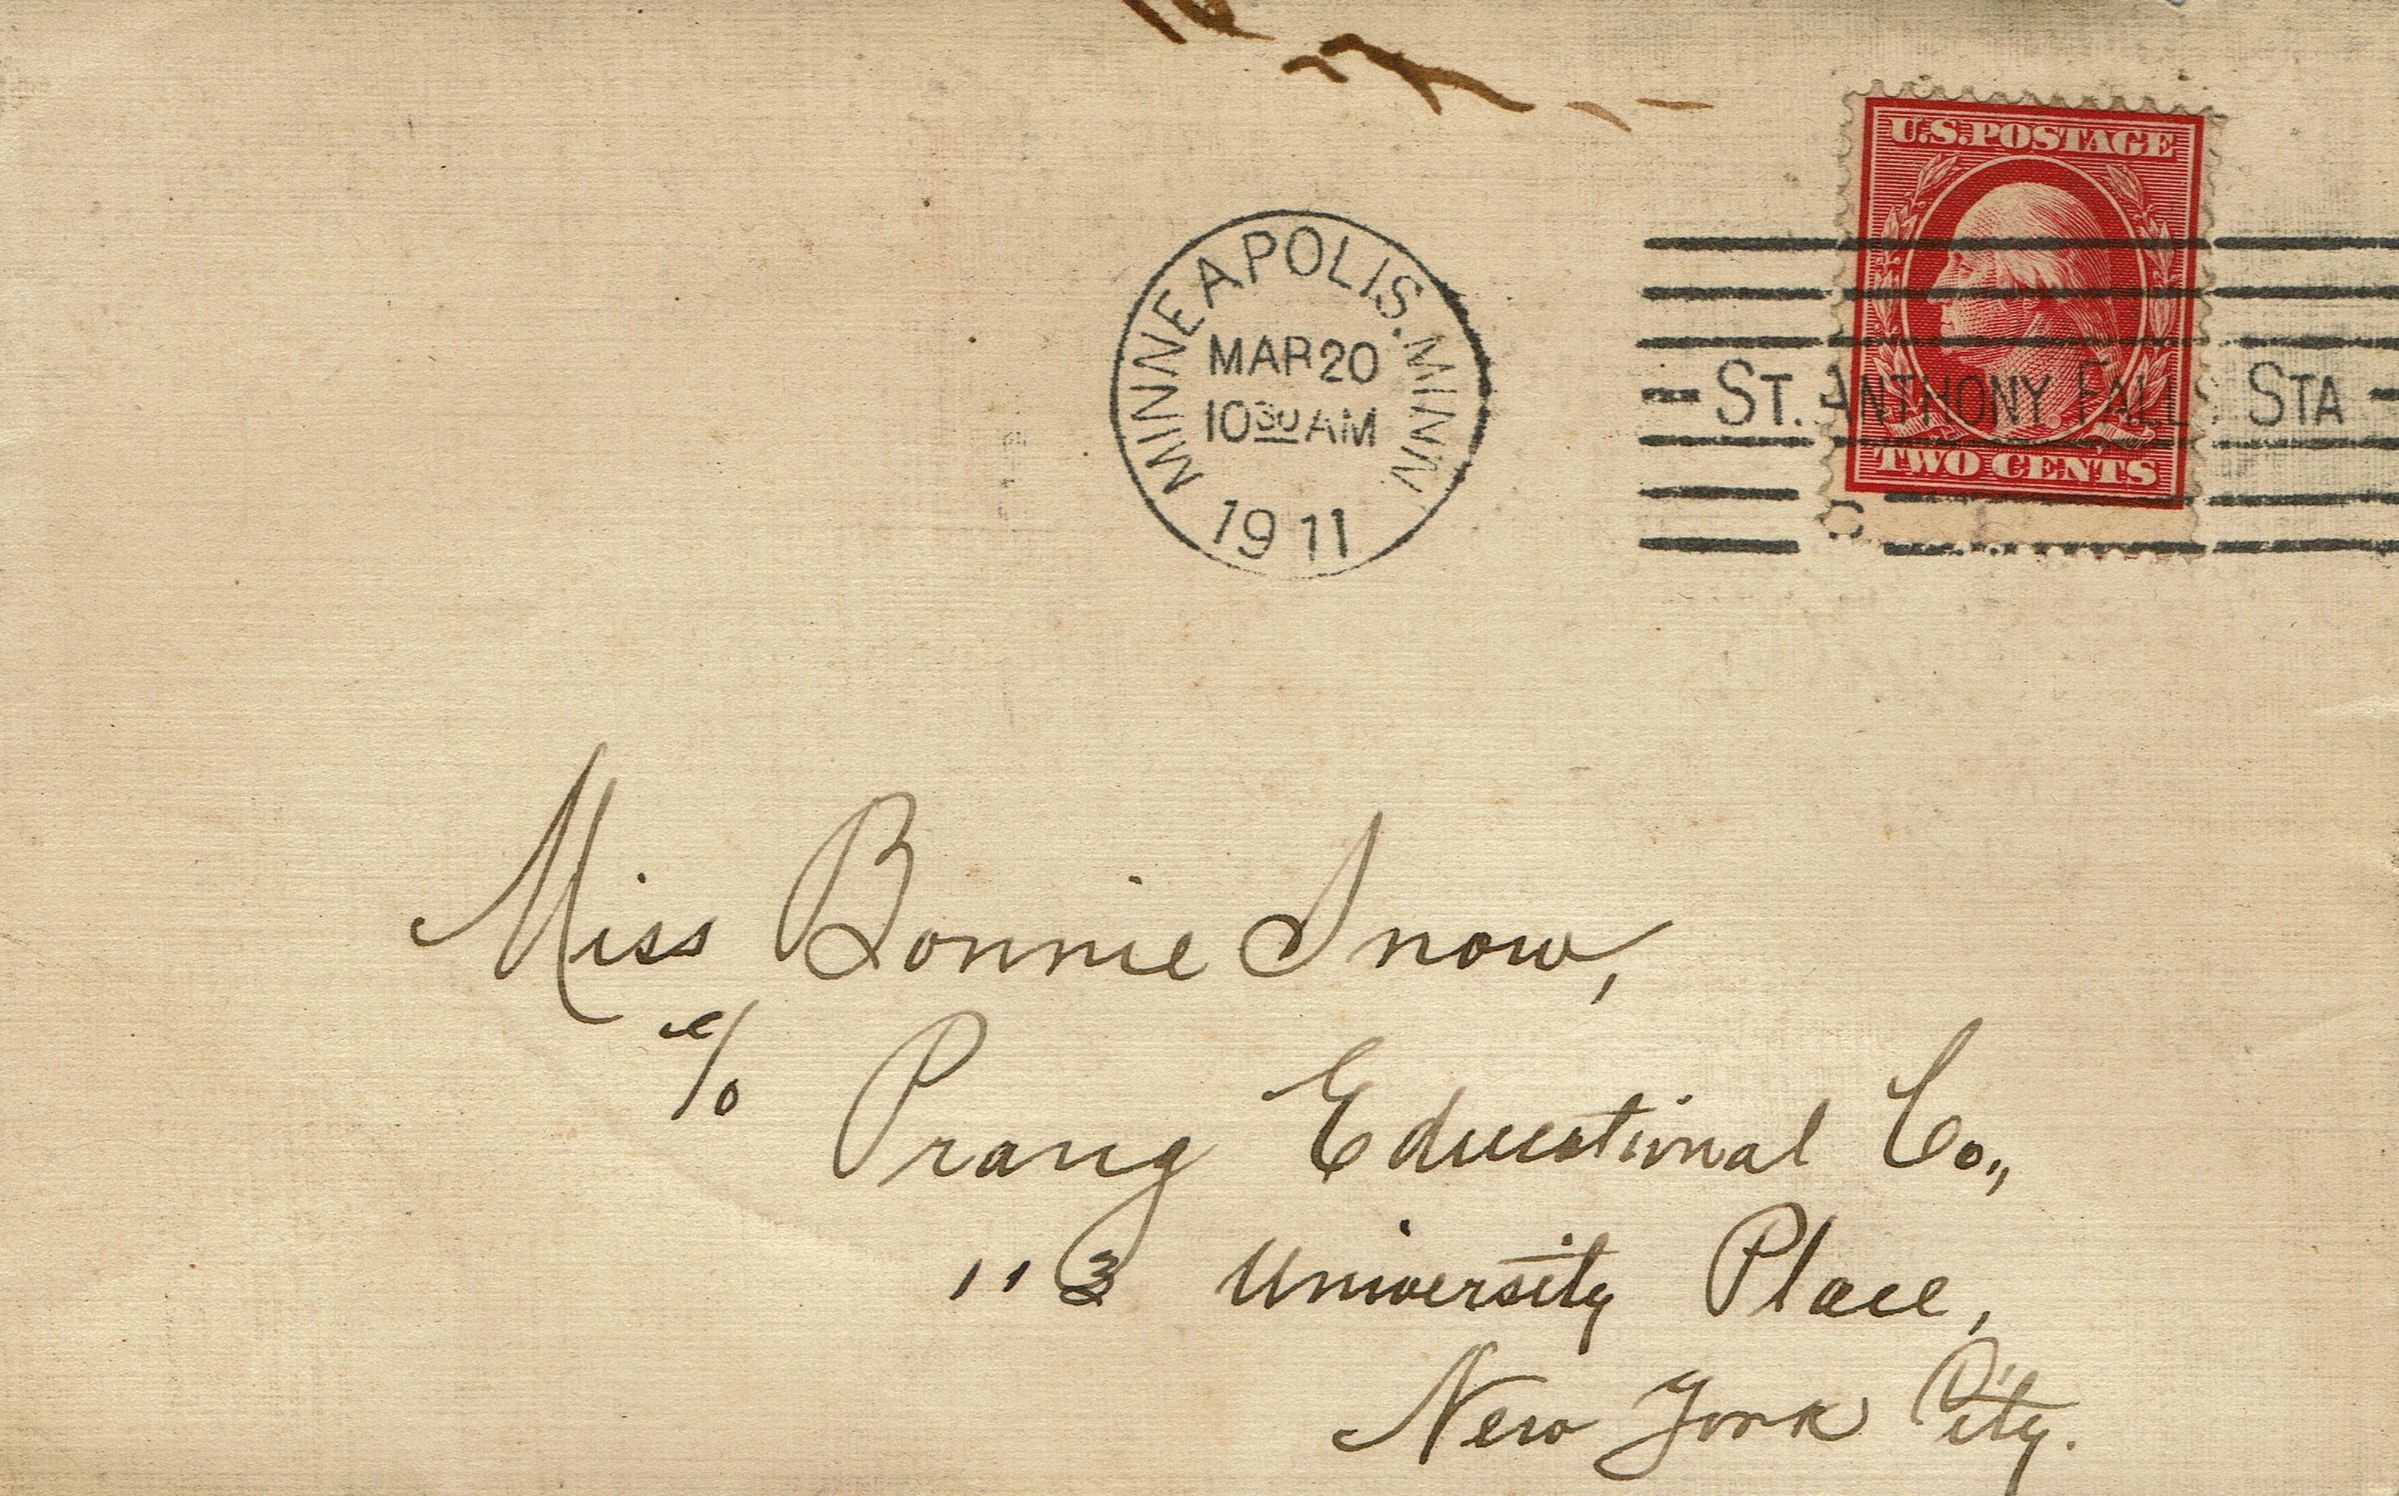 U.S. POSTAGE
MINNEAPOLIS. MINN
MAR 20
10 30 AM
1911
- ST. ANTHONY FALLS STA -
TWO CENTS
Miss Bonnie Snow,
c/o Prang Educational Co.,
113 University Place,
New York City.